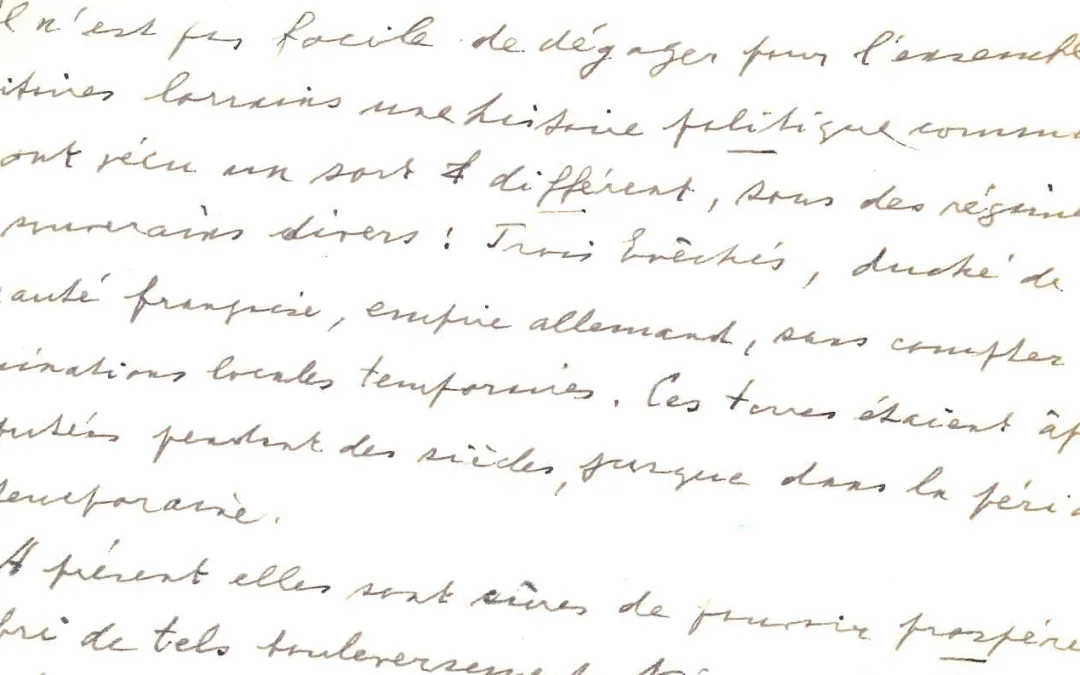 Il n'est pas facile de dégager pour l'ensemble
itoires lorrains une histoire politique commu
ont vécu un sort différent, sous des régime
souverains divers : Trois Evêchés, duché de
auté française, empire allemand, sans compter
inations locales temporaires. Ces terres étaient âp
putées pendant des siècles, jusque dans la péri
temporaine.
A présent elles sont sûres de pouvoir prospére
bri de tels bouleversement